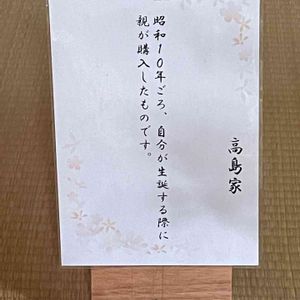 高島家
昭和10年ごろ、自分が生誕する際に
親が購入したものです。